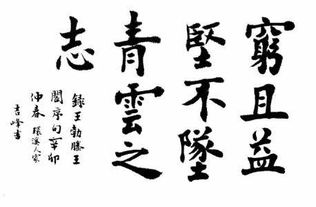 窮且益
堅不墜
青雲之
志
錄王勃滕王
閣序句辛卯
仲春環溪人家
吉峰書